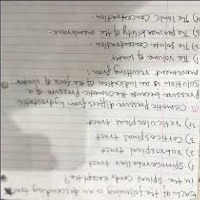 Each of the following is an descending tract
in the spinal cord except?
1) Spinocerebellar tract
2) Rubrospinal tract
3) Corticospinal tract
4) Vestibulospinal tract
Osmotic pressure differs from hydrostatic
pressure because the Osmotic pressure of a
Solution is an indication of the force of water
movement resulting from:
1) The volume of water
2) The solute Concentration
3) The permeability of the membrane.
4) The Ionic Concentration.